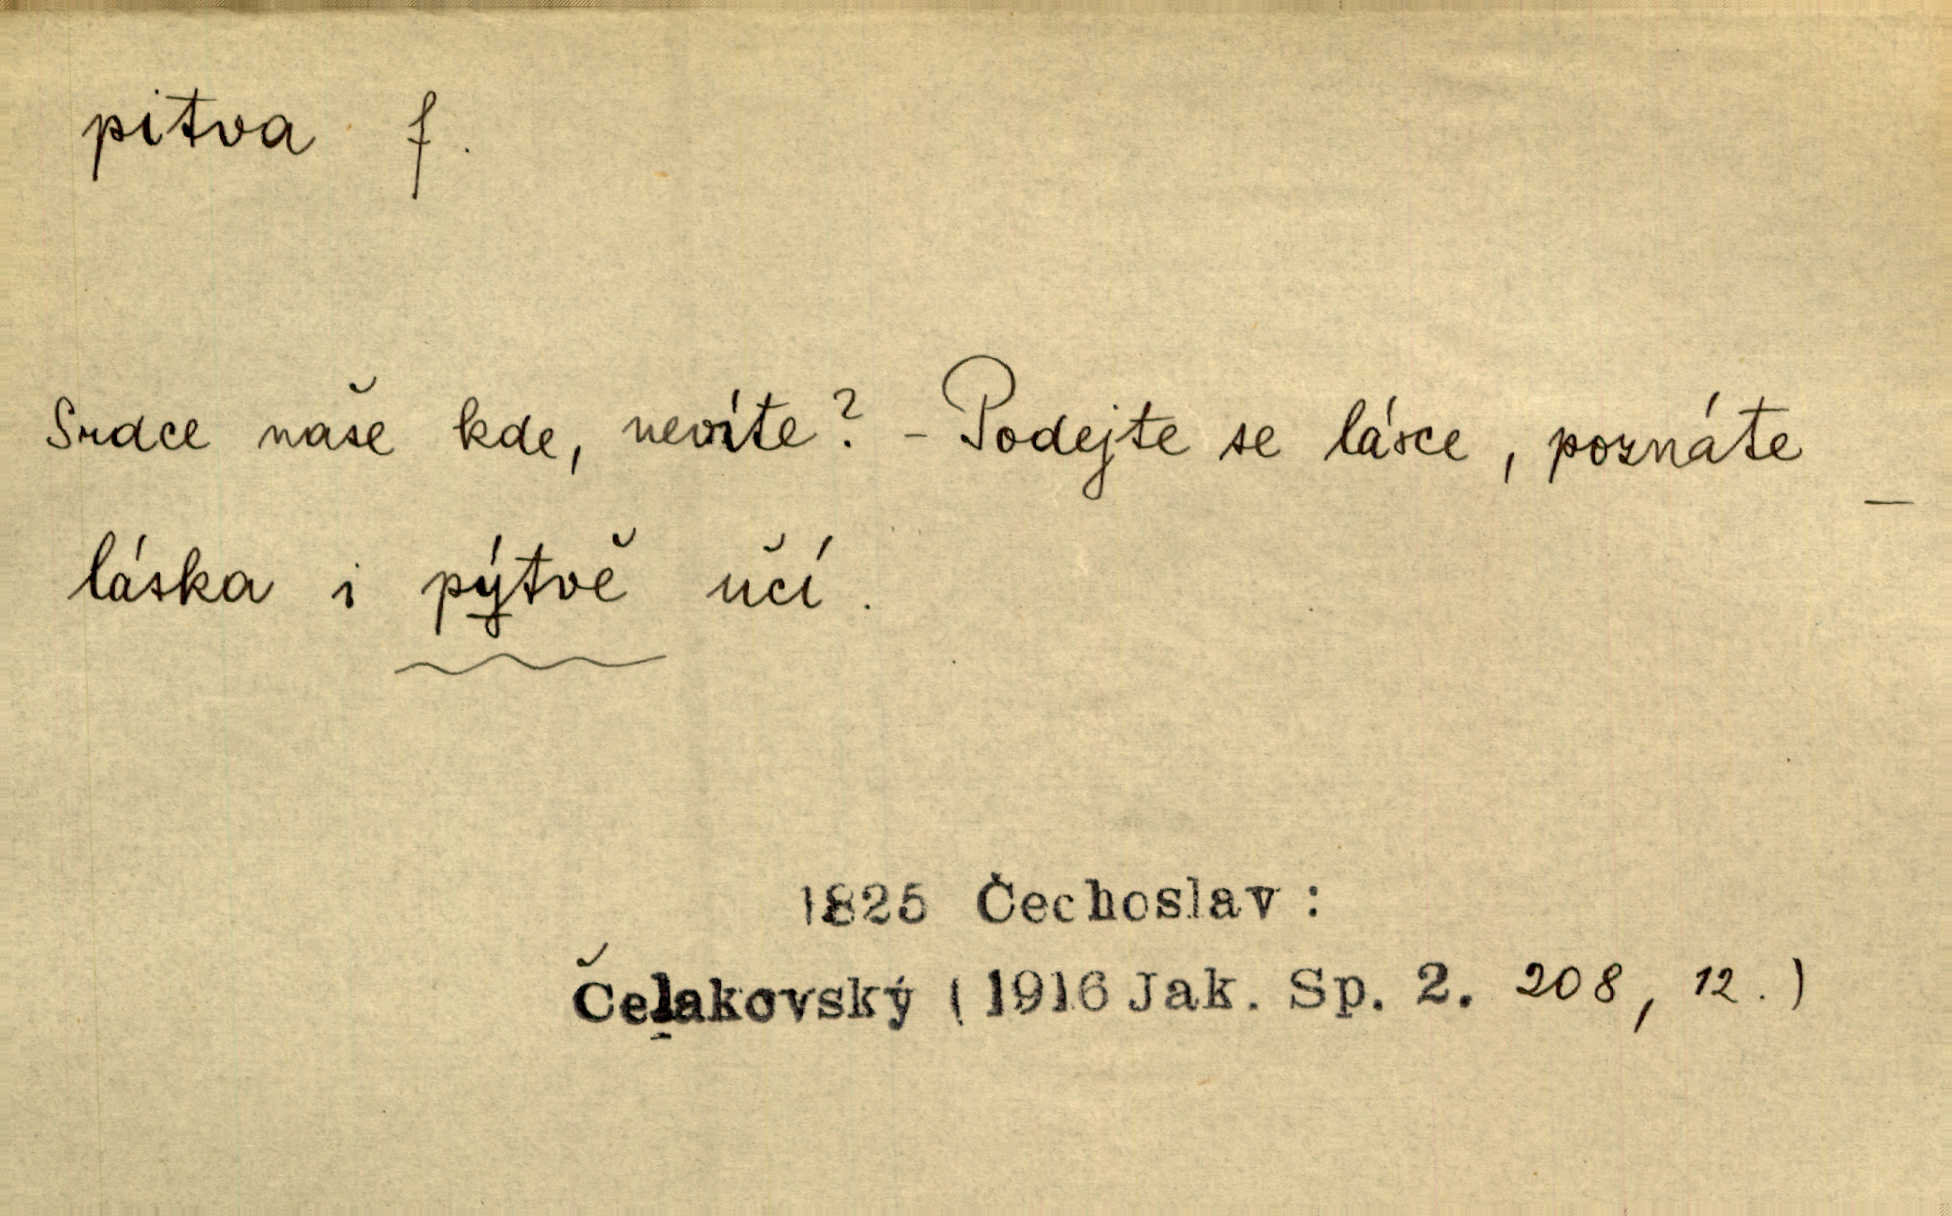 pitva f.
Srdce naše kde, nevíte? - Podejte se lásce, poznáte –
láska i pýtvě učí.
1825 Čechoslav:
Čelakovský (1916 Jak. Sp. 2. 208, 12.)